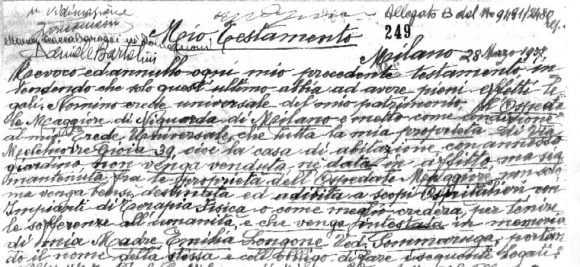 Allegato B del N° 9491/2480
Mio Testamento
249
Daniele Bartolini
Milano 28 Marzo 1938
Revoco ed annullo ogni mio precedente testamento in
tendendo che solo quest'ultimo abbia ad avere pieni effetti le
gali. Nomino erede universale del mio patrimonio, l'Ospeda
le Maggiore di Niguarda di Milano e metto come condizione
al mio Erede Universale, che tutta la mia proprietà di Via
Melchiorre Gioia 39, cioè la casa di abitazione, con annesso
giardino non venga venduta, nè data in affitto ma sia
mantenuta fra le proprietà dell'Ospedale Maggiore, non solo
ma venga bensì destinata ed adibita a scopi Ospitalieri con
Impianti di Terapia Fisica o come meglio crederà, per lenire
le sofferenze all'umanità, e che venga intestata in memoria
di mia Madre Emilia Longone Ved. Sommaruga, portan
do il nome della stessa e coll'obbligo di fare i seguenti legati